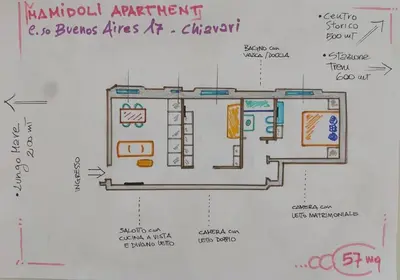 MAMIDOLI APARTMENT
C.so BUENOS AIRES 17 - CHIAVARI
• CENTRO
STORICO
500 MT
• STAZIONE
TRENI
600 MT
BAGNO con
VASCA/DOCCIA
• LUNGO MARE
200 MT
INGRESSO
SALOTTO con
CUCINA A VISTA
E DIVANO LETTO
CAMERA con
LETTO DOPPIO
CAMERA con
LETTO MATRIMONIALE
57 mq